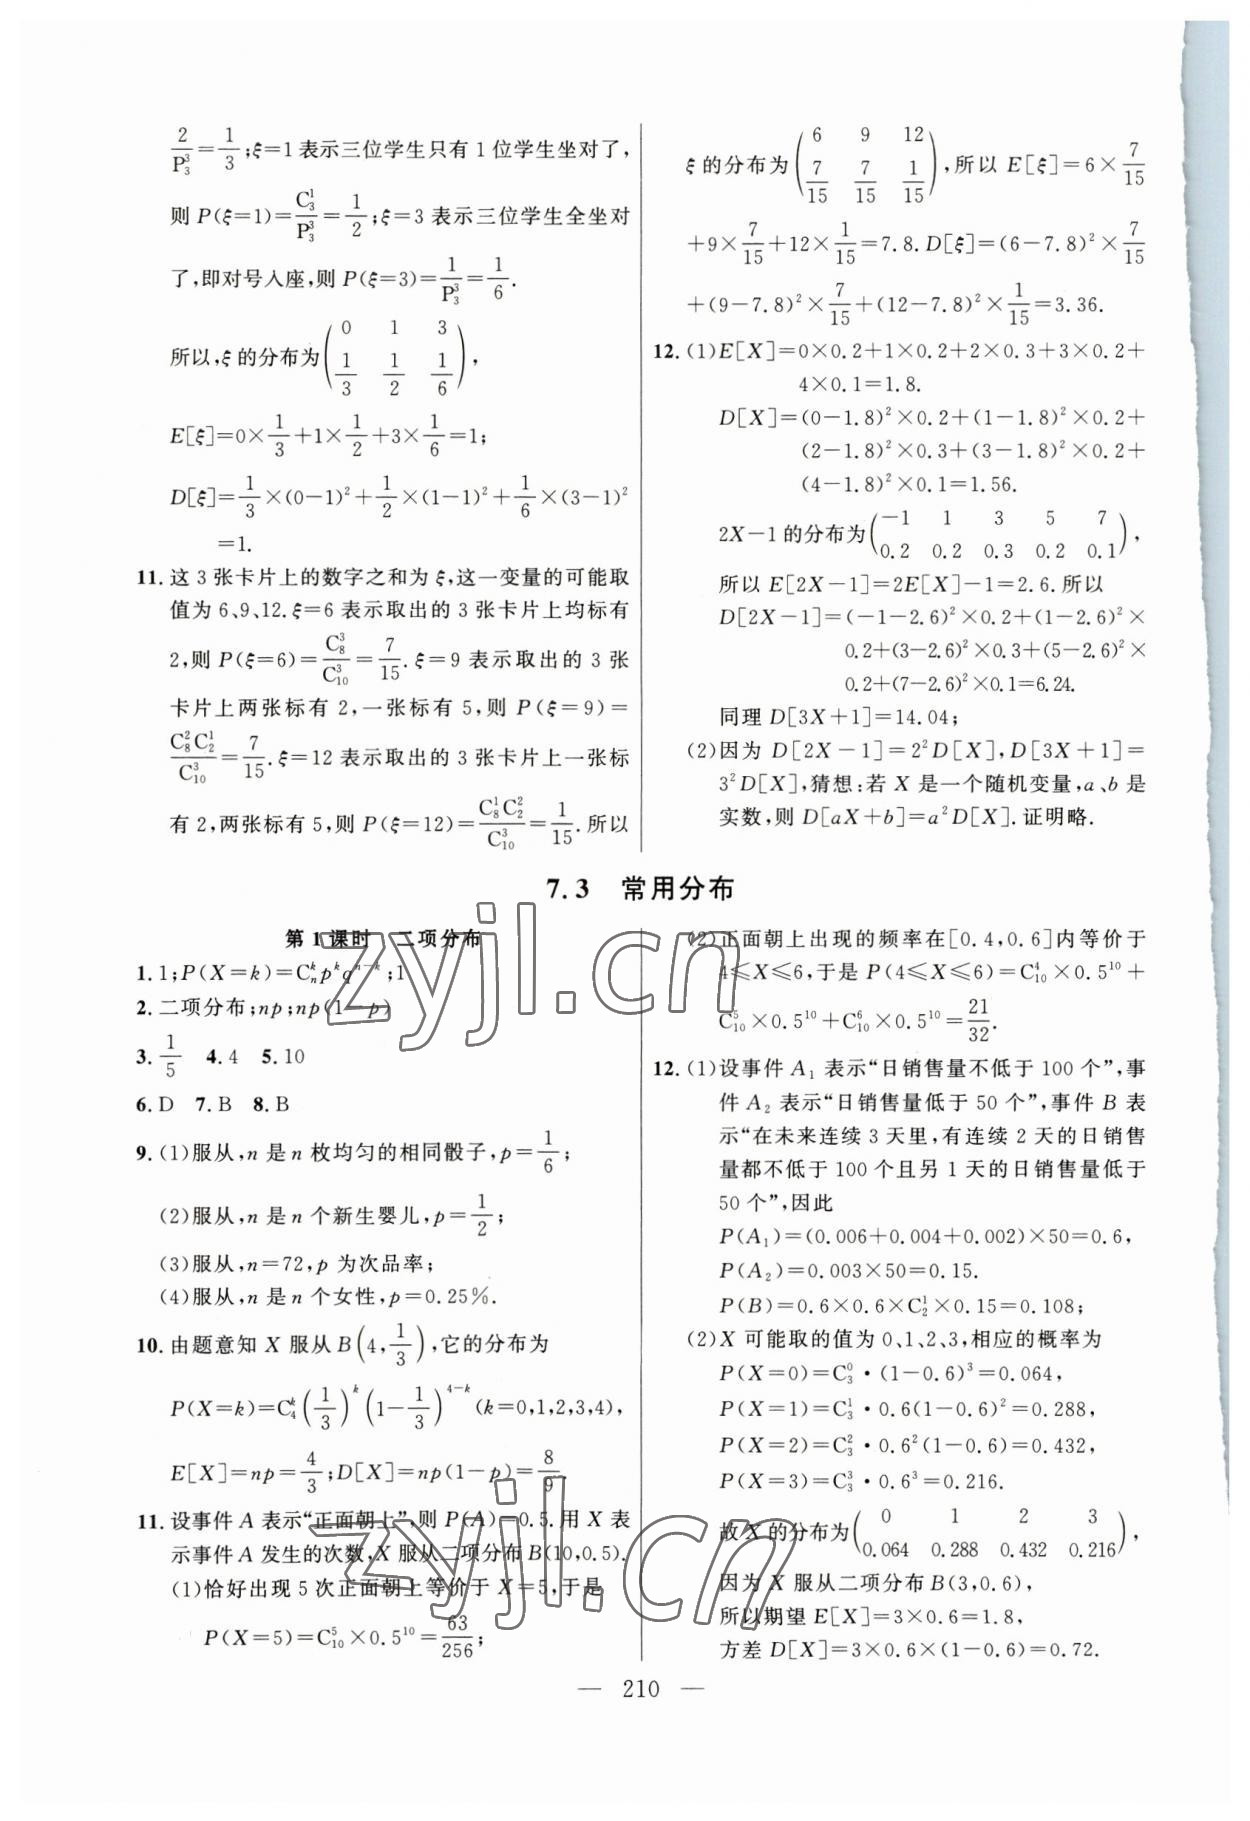 2/P₃³=1/3;ξ=1 表示三位学生只有 1 位学生坐对了,
则 P(ξ=1)=C₃¹/P₃³=1/2;ξ=3 表示三位学生全坐对
了,即对号入座,则 P(ξ=3)=1/P₃³=1/6.
所以,ξ 的分布为(0 1 3
1/3 1/2 1/6),
E[ξ]=0×1/3+1×1/2+3×1/6=1;
D[ξ]=1/3×(0-1)²+1/2×(1-1)²+1/6×(3-1)²
=1.
11. 这 3 张卡片上的数字之和为 ξ,这一变量的可能取
值为 6、9、12.ξ=6 表示取出的 3 张卡片上均标有
2,则 P(ξ=6)=C₈³/C₁₀³=7/15.ξ=9 表示取出的 3 张
卡片上两张标有 2,一张标有 5,则 P(ξ=9)=
C₈²C₂¹/C₁₀³=7/15.ξ=12 表示取出的 3 张卡片上一张标
有 2,两张标有 5,则 P(ξ=12)=C₈¹C₂²/C₁₀³=1/15.所以
ξ 的分布为(6 9 12
7/15 7/15 1/15),所以 E[ξ]=6×7/15
+9×7/15+12×1/15=7.8.D[ξ]=(6-7.8)²×7/15
+(9-7.8)²×7/15+(12-7.8)²×1/15=3.36.
12. (1)E[X]=0×0.2+1×0.2+2×0.3+3×0.2+
4×0.1=1.8.
D[X]=(0-1.8)²×0.2+(1-1.8)²×0.2+
(2-1.8)²×0.3+(3-1.8)²×0.2+
(4-1.8)²×0.1=1.56.
2X-1 的分布为(-1 1 3 5 7
0.2 0.2 0.3 0.2 0.1),
所以 E[2X-1]=2E[X]-1=2.6.所以
D[2X-1]=(-1-2.6)²×0.2+(1-2.6)²×
0.2+(3-2.6)²×0.3+(5-2.6)²×
0.2+(7-2.6)²×0.1=6.24.
同理 D[3X+1]=14.04;
(2)因为 D[2X-1]=2²D[X],D[3X+1]=
3²D[X],猜想:若 X 是一个随机变量,a、b 是
实数,则 D[aX+b]=a²D[X].证明略.
7.3 常用分布
第 1 课时 二项分布
1. 1;P(X=k)=Cₙᵏpᵏqⁿ⁻ᵏ;1
2. 二项分布;np;np(1-p)
3. 1/5 4. 4 5. 10
6. D 7. B 8. B
9. (1)服从,n 是 n 枚均匀的相同骰子,p=1/6;
(2)服从,n 是 n 个新生婴儿,p=1/2;
(3)服从,n=72,p 为次品率;
(4)服从,n 是 n 个女性,p=0.25%.
10. 由题意知 X 服从 B(4,1/3),它的分布为
P(X=k)=C₄ᵏ(1/3)ᵏ(1-1/3)⁴⁻ᵏ(k=0,1,2,3,4),
E[X]=np=4/3;D[X]=np(1-p)=8/9.
11. 设事件 A 表示“正面朝上”,则 P(A)=0.5.用 X 表
示事件 A 发生的次数,X 服从二项分布 B(10,0.5).
(1)恰好出现 5 次正面朝上等价于 X=5,于是
P(X=5)=C₁₀⁵×0.5¹⁰=63/256;
(2)正面朝上出现的频率在[0.4,0.6]内等价于
4≤X≤6,于是 P(4≤X≤6)=C₁₀⁴×0.5¹⁰+
C₁₀⁵×0.5¹⁰+C₁₀⁶×0.5¹⁰=21/32.
12. (1)设事件 A₁ 表示“日销售量不低于 100 个”,事
件 A₂ 表示“日销售量低于 50 个”,事件 B 表
示“在未来连续 3 天里,有连续 2 天的日销售
量都不低于 100 个且另 1 天的日销售量低于
50 个”,因此
P(A₁)=(0.006+0.004+0.002)×50=0.6,
P(A₂)=0.003×50=0.15.
P(B)=0.6×0.6×C₂¹×0.15=0.108;
(2)X 可能取的值为 0、1、2、3,相应的概率为
P(X=0)=C₃⁰·(1-0.6)³=0.064,
P(X=1)=C₃¹·0.6(1-0.6)²=0.288,
P(X=2)=C₃²·0.6²(1-0.6)=0.432,
P(X=3)=C₃³·0.6³=0.216.
故 X 的分布为(0 1 2 3
0.064 0.288 0.432 0.216),
因为 X 服从二项分布 B(3,0.6),
所以期望 E[X]=3×0.6=1.8,
方差 D[X]=3×0.6×(1-0.6)=0.72.
— 210 —
zyjl.cn
zyjl.cn